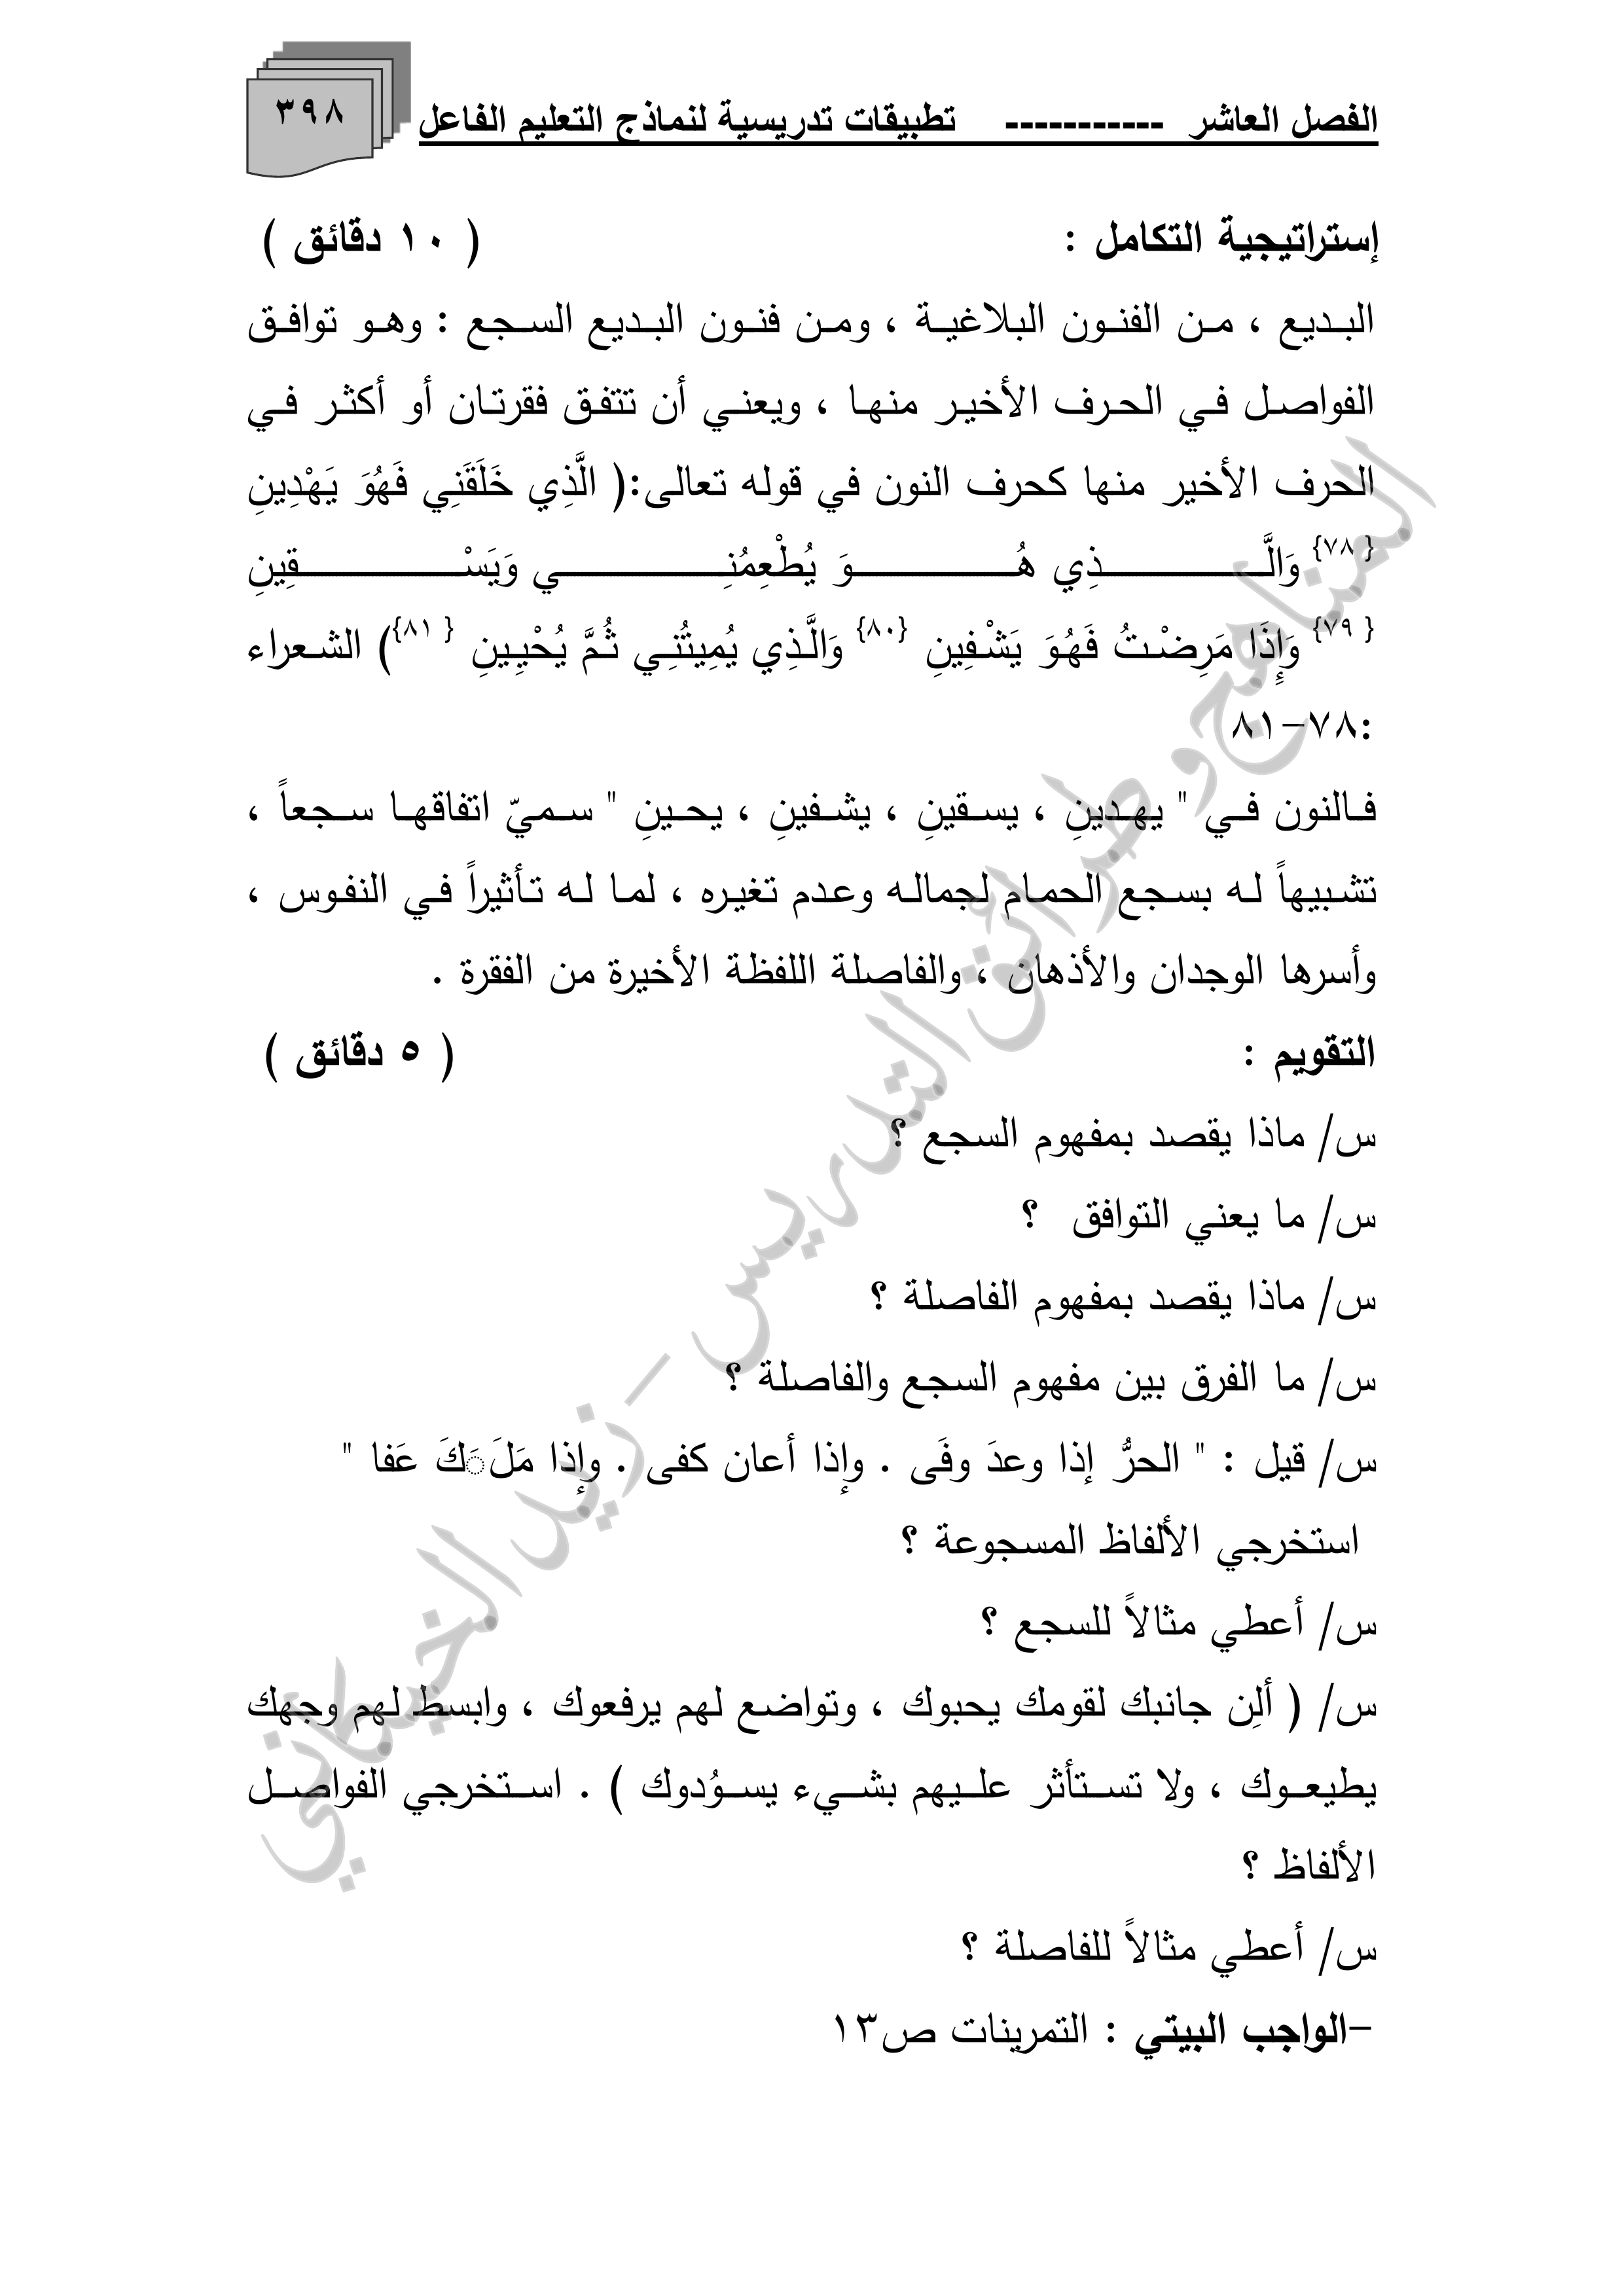 الفصل العاشر ----------- تطبيقات تدريسية لنماذج التعليم الفاعل
٣٩٨
إستراتيجية التكامل : ( ١٠ دقائق )
البديع ، من الفنون البلاغية ، ومن فنون البديع السجع : وهو توافق
الفواصل في الحرف الأخير منها ، ويعني أن تتفق فقرتان أو أكثر في
الحرف الأخير منها كحرف النون في قوله تعالى:( الَّذِي خَلَقَنِي فَهُوَ يَهْدِينِ
{٧٨} وَالَّذِي هُوَ يُطْعِمُنِي وَيَسْقِينِ
{٧٩} وَإِذَا مَرِضْتُ فَهُوَ يَشْفِينِ {٨٠} وَالَّذِي يُمِيتُنِي ثُمَّ يُحْيِينِ {٨١}) الشعراء
:٧٨-٨١
فالنون في " يهدينِ ، يسقينِ ، يشفينِ ، يحينِ " سميّ اتفاقها سجعاً ،
تشبيهاً له بسجع الحمام لجماله وعدم تغيره ، لما له تأثيراً في النفوس ،
وأسرها الوجدان والأذهان ، والفاصلة اللفظة الأخيرة من الفقرة .
التقويم : ( ٥ دقائق )
س/ ماذا يقصد بمفهوم السجع ؟
س/ ما يعني التوافق ؟
س/ ماذا يقصد بمفهوم الفاصلة ؟
س/ ما الفرق بين مفهوم السجع والفاصلة ؟
س/ قيل : " الحرُّ إذا وعدَ وفَى . وإذا أعان كفى . وإذا مَلَ َكَ عَفا "
استخرجي الألفاظ المسجوعة ؟
س/ أعطي مثالاً للسجع ؟
س/ ( ألِن جانبك لقومك يحبوك ، وتواضع لهم يرفعوك ، وابسط لهم وجهك
يطيعوك ، ولا تستأثر عليهم بشيء يسوُدوك ) . استخرجي الفواصل
الألفاظ ؟
س/ أعطي مثالاً للفاصلة ؟
-الواجب البيتي : التمرينات ص١٣
المناهج وطرائق التدريس - زيد الخيكاني